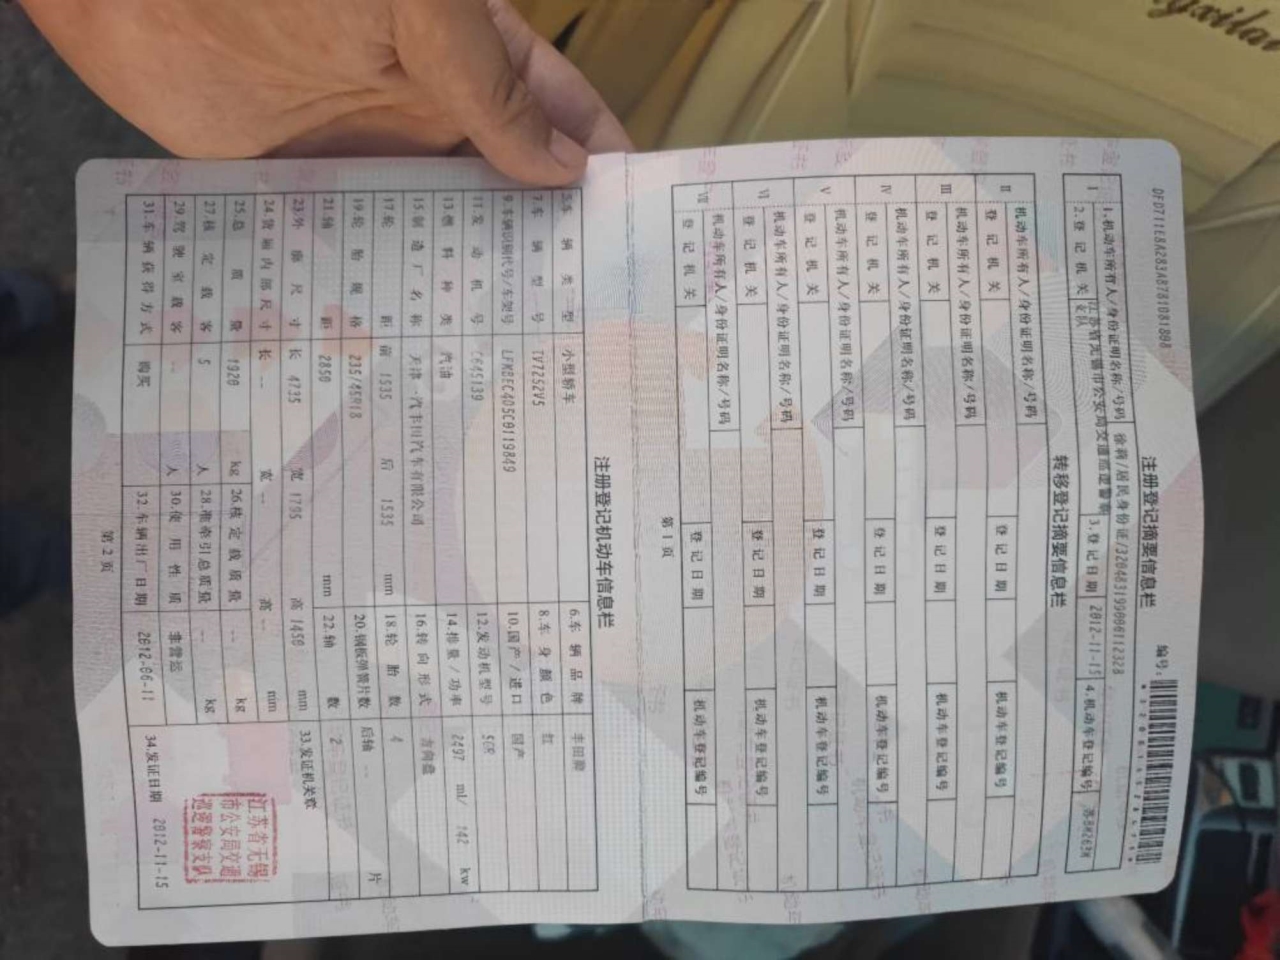 注册登记摘要信息栏
编号:
1
1.机动车所有人/身份证明名称/号码 徐莉/居民身份证/320483199000112328
2.登记机关 江苏省无锡市公安局交通巡逻警察支队 3.登记日期 2012-11-15 4.机动车登记编号
转移登记摘要信息栏
II 机动车所有人/身份证明名称/号码
登记机关 登记日期 机动车登记编号
III 机动车所有人/身份证明名称/号码
登记机关 登记日期 机动车登记编号
IV 机动车所有人/身份证明名称/号码
登记机关 登记日期 机动车登记编号
V 机动车所有人/身份证明名称/号码
登记机关 登记日期 机动车登记编号
VI 机动车所有人/身份证明名称/号码
登记机关 登记日期 机动车登记编号
VII 机动车所有人/身份证明名称/号码
登记机关 登记日期 机动车登记编号
第1页
注册登记机动车信息栏
5.车辆类型 小型轿车 6.车辆品牌 丰田牌
7.车辆型号 TV7252V5 8.车身颜色 红
9.车辆识别代号/车架号 LFMBEC4D5C0119849 10.国产/进口 国产
11.发动机号 C645139 12.发动机型号 5GR
13.燃料种类 汽油 14.排量/功率 2497 ml/ 142 kw
15.制造厂名称 天津一汽丰田汽车有限公司 16.转向形式 方向盘
17.轮距 前 1535 后 1535 mm 18.轮胎数 4
19.轮胎规格 235/45R18 20.钢板弹簧片数 后轴 -- 片
21.轴距 2850 mm 22.轴数 2
23.外廓尺寸 长 4735 宽 1795 高 1450 mm 33.发证机关章
24.货厢内部尺寸 长 -- 宽 -- 高 -- mm
25.总质量 1920 kg 26.核定载质量 -- kg
27.核定载客 5 人 28.准牵引总质量 -- kg
29.驾驶室载客 -- 人 30.使用性质 非营运
31.车辆获得方式 购买 32.车辆出厂日期 2012-06-11 34.发证日期 2012-11-15
江苏省无锡
市公安局交通
巡逻警察支队
第2页